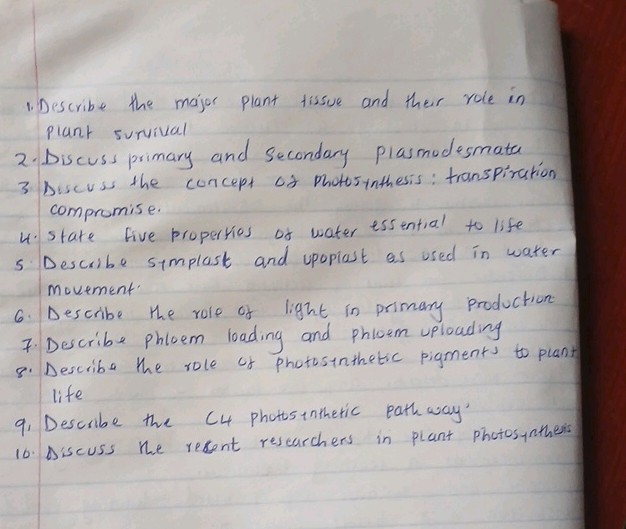 1. Describe the major plant tissue and their role in
plant survival
2. Discuss primary and secondary plasmodesmata
3 Discuss the concept of photosynthesis : transpiration
compromise.
4. State five properties of water essential to life
5 Describe symplast and upoplast as used in water
movement.
6. Describe the role of light in primary production
7. Describe phloem loading and phloem uploading
8. Describe the role of photosynthetic pigments to plant
life
9. Describe the C4 photosynthetic pathway.
10. Discuss the recent researchers in plant photosynthesis